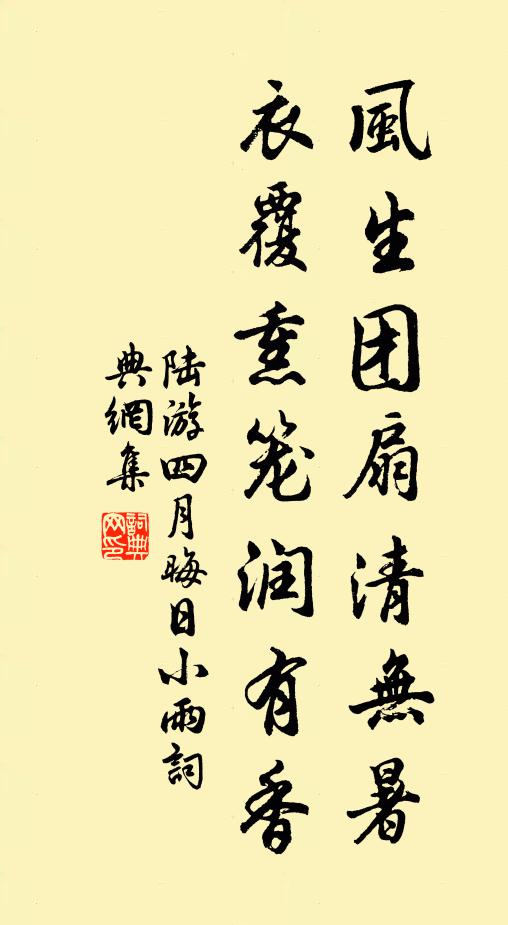 風生团扇清無暑
衣覆熏笼润有香
陆游四月晦日小雨詞
典網集
詞典
网印